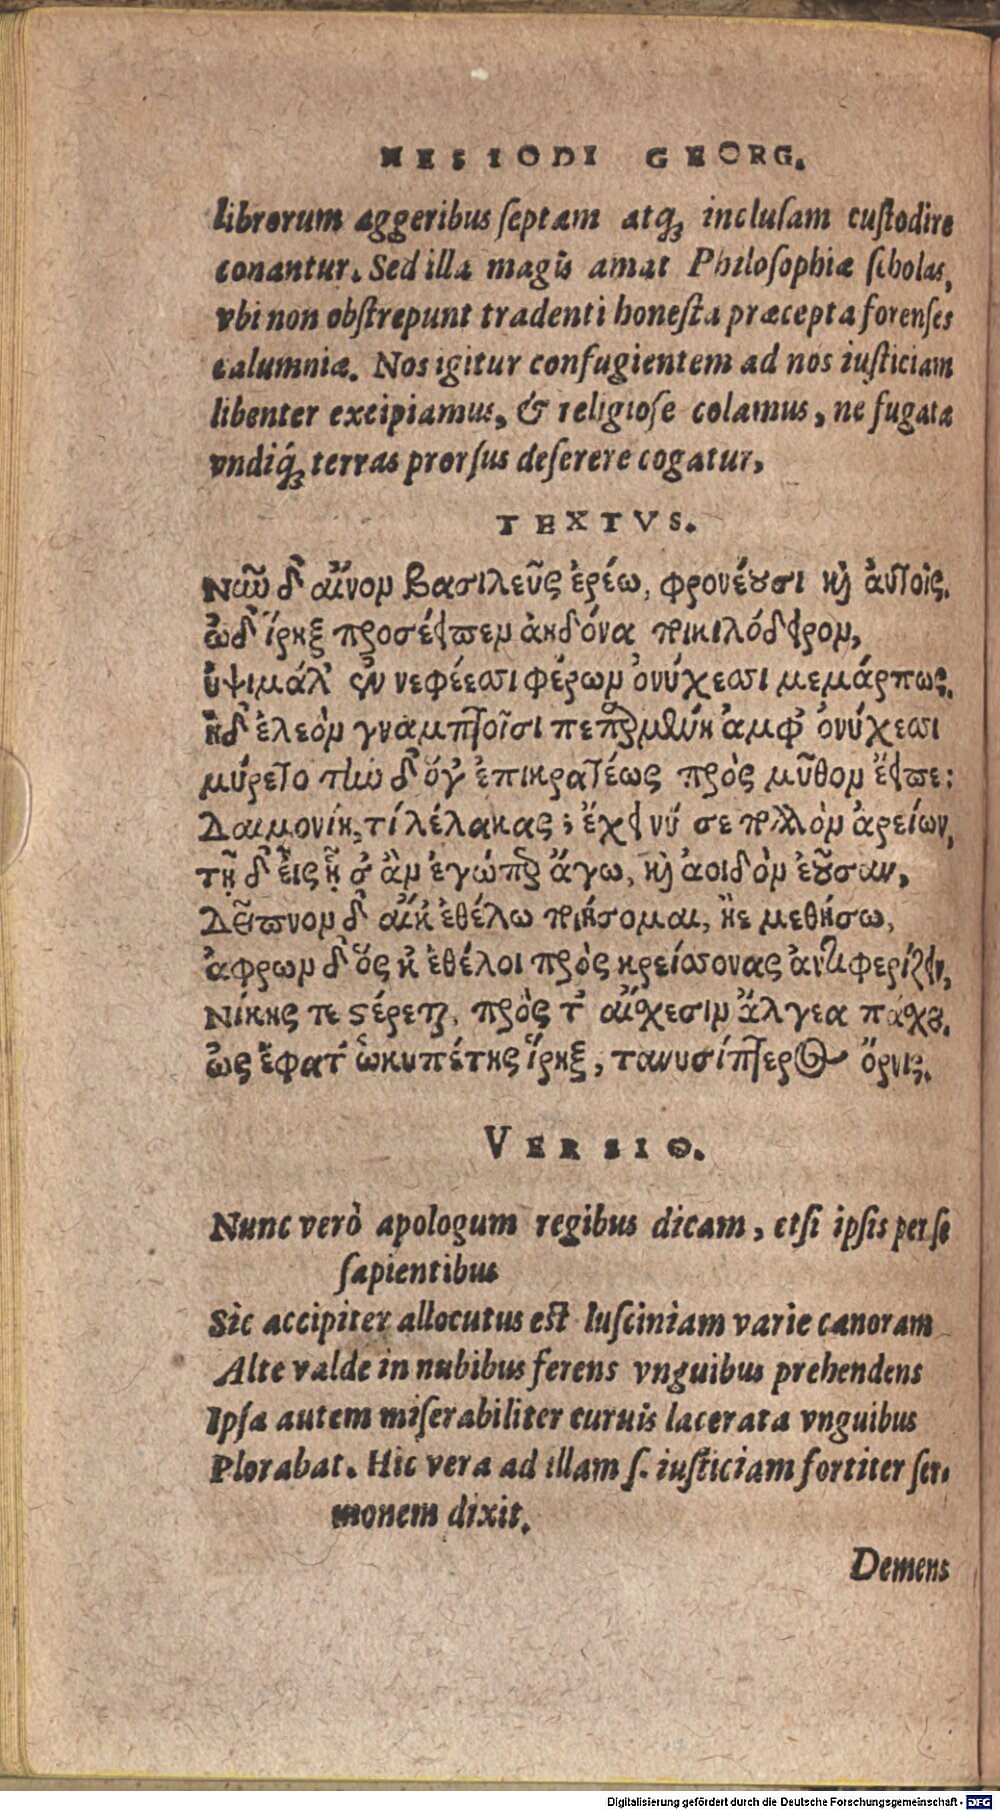 HESIODI GEORG.
librorum aggeribus septam atq́; inclusam custodire
conantur. Sed illa magis amat Philosophiæ scholas,
vbi non obstrepunt tradenti honesta præcepta forenses
calumniæ. Nos igitur confugientem ad nos iusticiam
libenter excipiamus, & religiose colamus, ne fugata
vndiq́; terras prorsus deserere cogatur,
TEXTVS.
Νῦν δ' αἶνον βασιλεῦς ἐρέω, φρονέουσι καὶ ἀυτοῖς.
ὧδ' ἴρηξ προσέειπεν ἀηδόνα ποικιλόδειρον,
ὕψι μάλ' ἐν νεφέεσσι φέρων ὀνύχεσσι μεμάρπως.
ἡ δ' ἐλεὸν γναμπτοῖσι πεπαρμένη ἀμφ' ὀνύχεσσι
μύρετο τὴν δ' ὅγ' ἐπικρατέως πρὸς μῦθον ἔειπε:
Δαιμονίη, τί λέλακας; ἔχει νύ σε πολλὸν ἀρείων,
τῇ δ' εἶς ᾗ σ' ἂν ἐγώπερ ἄγω, καὶ ἀοιδὸν ἐοῦσαν,
Δεῖπνον δ' αἴκ' ἐθέλω ποιήσομαι, ἠὲ μεθήσω,
ἄφρων δ' ὅς κ' ἐθέλοι πρὸς κρείσσονας ἀντιφερίζειν,
Νίκης τε στέρεται, πρὸς τ' αἴσχεσιν ἄλγεα πάσχει.
ὣς ἔφατ' ὠκυπέτης ἴρηξ, τανυσίπτερος ὄρνις.
VERSIO.
Nunc verò apologum regibus dicam, etsi ipsis per se
sapientibus
Sic accipiter allocutus est lusciniam varie canoram
Alte valde in nubibus ferens vnguibus prehendens
Ipsa autem miserabiliter curuis lacerata vnguibus
Plorabat. Hic vera ad illam s. iusticiam fortiter ser-
monem dixit.
Demens
Digitalisierung gefördert durch die Deutsche Forschungsgemeinschaft - DFG